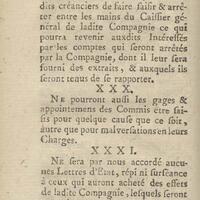 dits créanciers de faire saisir & arrê-
ter entre les mains du Caissier gé-
néral de ladite Compagnie ce qui
pourra revenir auxdits Intéressés
par les comptes qui seront arrêtés
par la Compagnie, dont il leur sera
fourni des extraits, & auxquels ils
seront tenus de se rapporter.
XXX.
NE pourront aussi les gages &
appointemens des Commis être sai-
sis pour quelque cause que ce soit,
autre que pour malversations en leurs
Charges.
XXXI.
NE sera par nous accordé aucu-
nes Lettres d'Etat, répi ni surséance
à ceux qui auront acheté des effets
de ladite Compagnie, lesquels seront